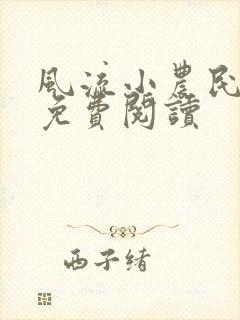 風流小農民
免費閱讀
西子緒